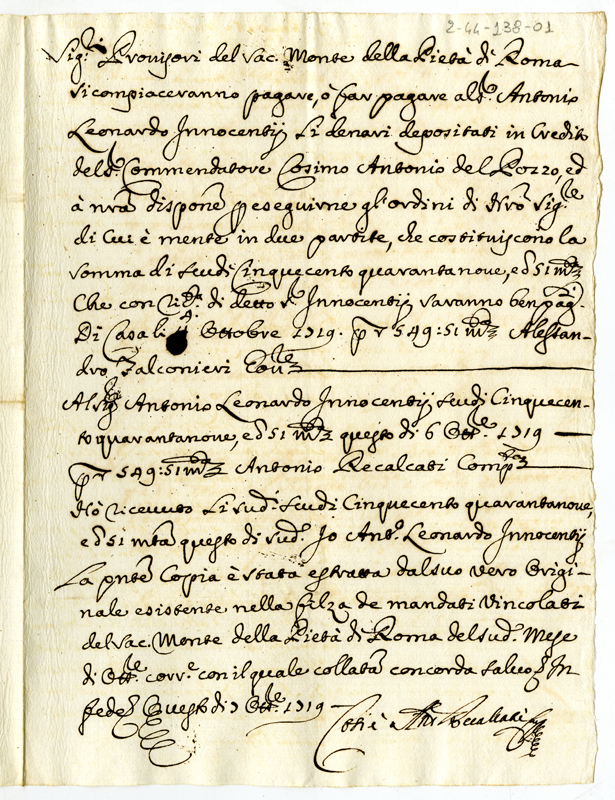 2-44-138-01
Sig.ri Provisori del Sac. Monte della Pietà di Roma
Si compiaceranno pagare, ò far pagare al Sr. Antonio
Leonardo Innocentij Li denari depositati in Credito
del Sr. Commendatore Cosimo Antonio del Pozzo, ed
à nrã disponẽ p eseguirne gl'ordini di Nrõ Sig.re
di Cui è mente in due partite, che costituiscono la
somma di scudi Cinquecento quarantanove, e d 51 mta
Che con Ric.ta di detto Sr. Innocentij saranno ben pag.
Di Casa li 4 Ottobre 1719. p ▽ 549:51 mta Alessan-
dro Falconieri
Al Sig. Antonio Leonardo Innocentij scudi Cinquecen-
to quarantanove, e d 51 mta questo di 6 Ott.re 1719
p ▽ 549:51 mta Antonio Recalcati Comp.ta
Hò ricevuto Li sud.i scudi Cinquecento quarantanove,
e d 51 mtã questo di sud.o Io Ant.o Leonardo Innocentij
La pntẽ Copia è stata estratta dal suo vero Origi-
nale esistente nella filza de mandati Vincolati
del Sac. Monte della Pietà di Roma del sud.o Mese
di Ott.re corr.e con il quale collata concorda salvo In
fede Questo di 7 Ott.re 1719
Così è Ant. Recalcati